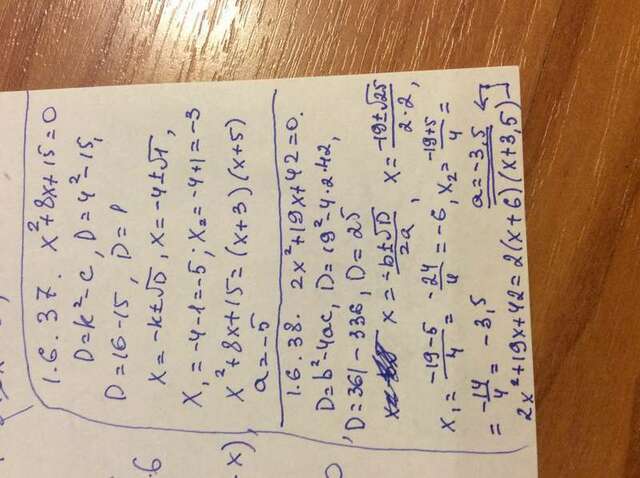 1.6.37. x²+8x+15=0
D=k²-c, D=4²-15,
D=16-15, D=1
x=-k±√D, x=-4±√1,
x₁=-4-1=-5, x₂=-4+1=-3
x²+8x+15=(x+3)(x+5)
a=-5
1.6.38. 2x²+19x+42=0.
D=b²-4ac, D=19²-4·2·42,
D=361-336, D=25
x=(-b±√D)/2a, x=(-19±√25)/(2·2),
x₁=(-19-5)/4=-24/4=-6, x₂=(-19+5)/4=
=-14/4=-3,5 a=-3,5
2x²+19x+42=2(x+6)(x+3,5)
6
x)
0